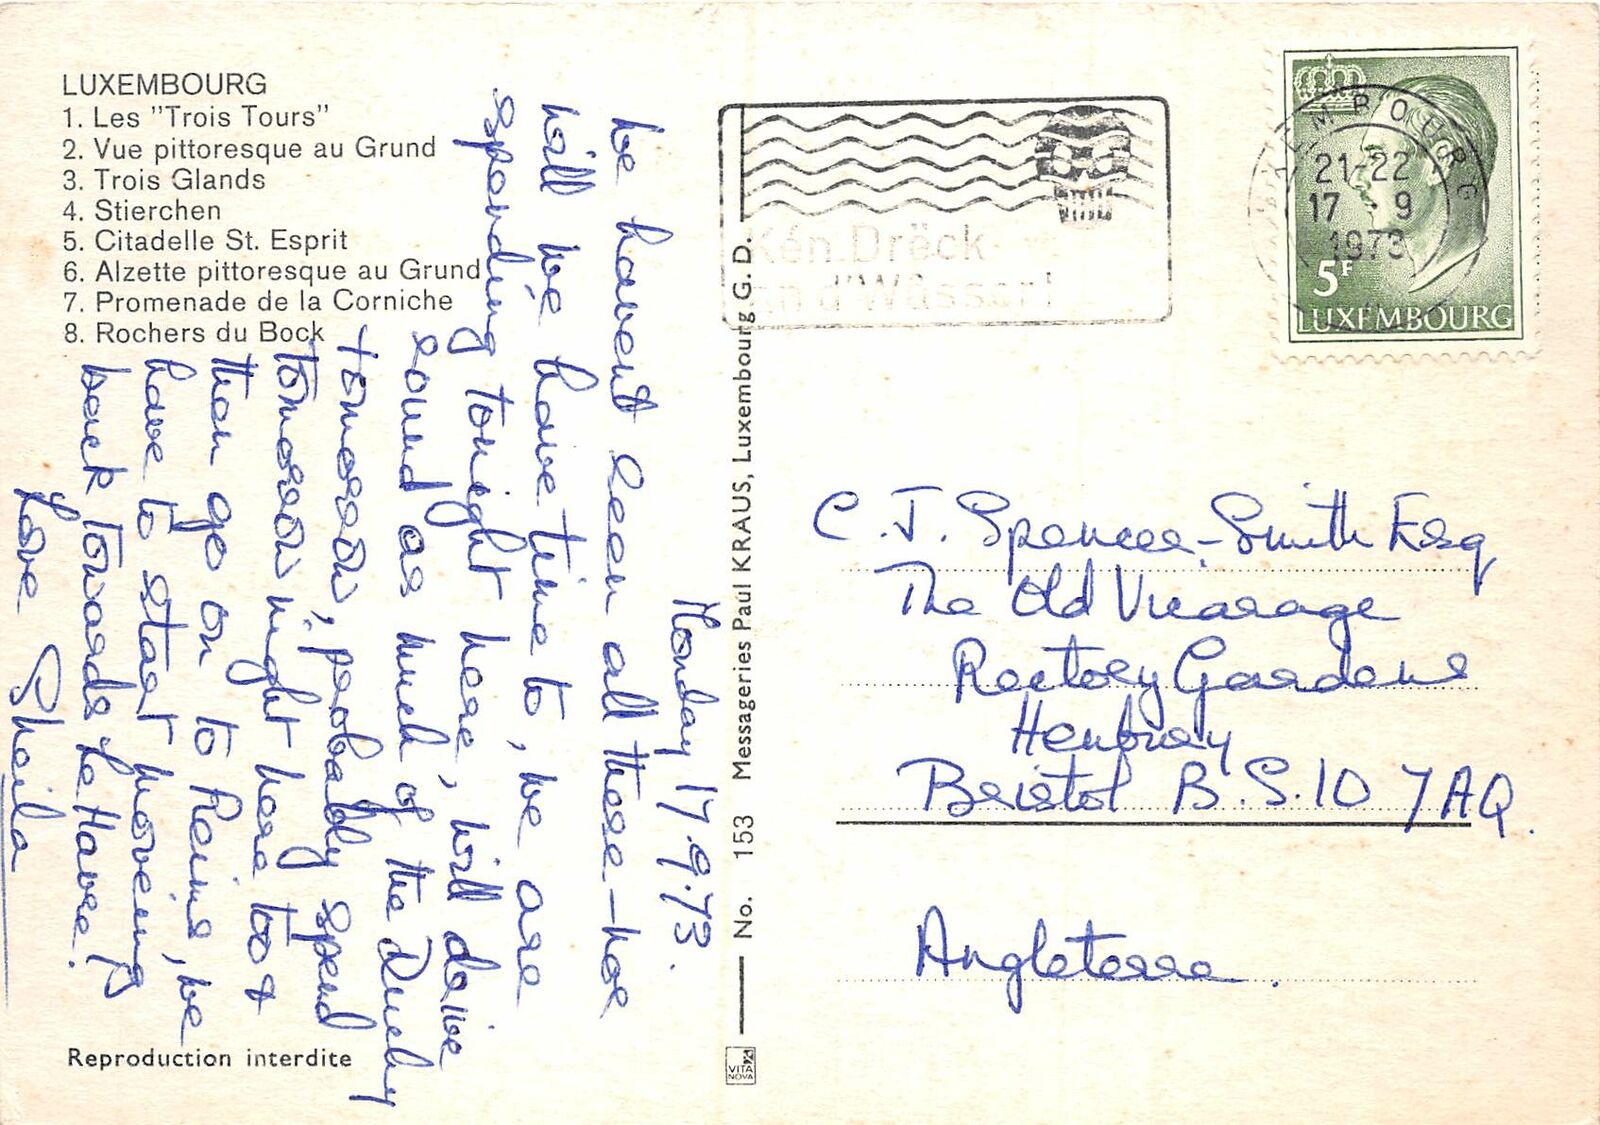 LUXEMBOURG
1. Les "Trois Tours"
2. Vue pittoresque au Grund
3. Trois Glands
4. Stierchen
5. Citadelle St. Esprit
6. Alzette pittoresque au Grund
7. Promenade de la Corniche
8. Rochers du Bock
Monday 17.9.73.
We havent seen all these – nor
will we have time to, we are
spending tonight here, will drive
round as much of the Duchy
tomorrow, probably spend
tomorrow night here too &
then go on to Reims, we
have to start moveing
back towards Le Havre!
Love Sheila
Reproduction interdite
No. 153 Messageries Paul KRAUS, Luxembourg G. D.
VITA
NOVA
Kén Drëck
an d'Wâsser!
LUXEMBOURG
21-22
17 - 9
1973
5F
LUXEMBOURG
C. J. Spencer-Smith Esq
The Old Vicarage
Rectory Gardens
Henbury
Bristol B.S.10 7AQ.
Angleterre.